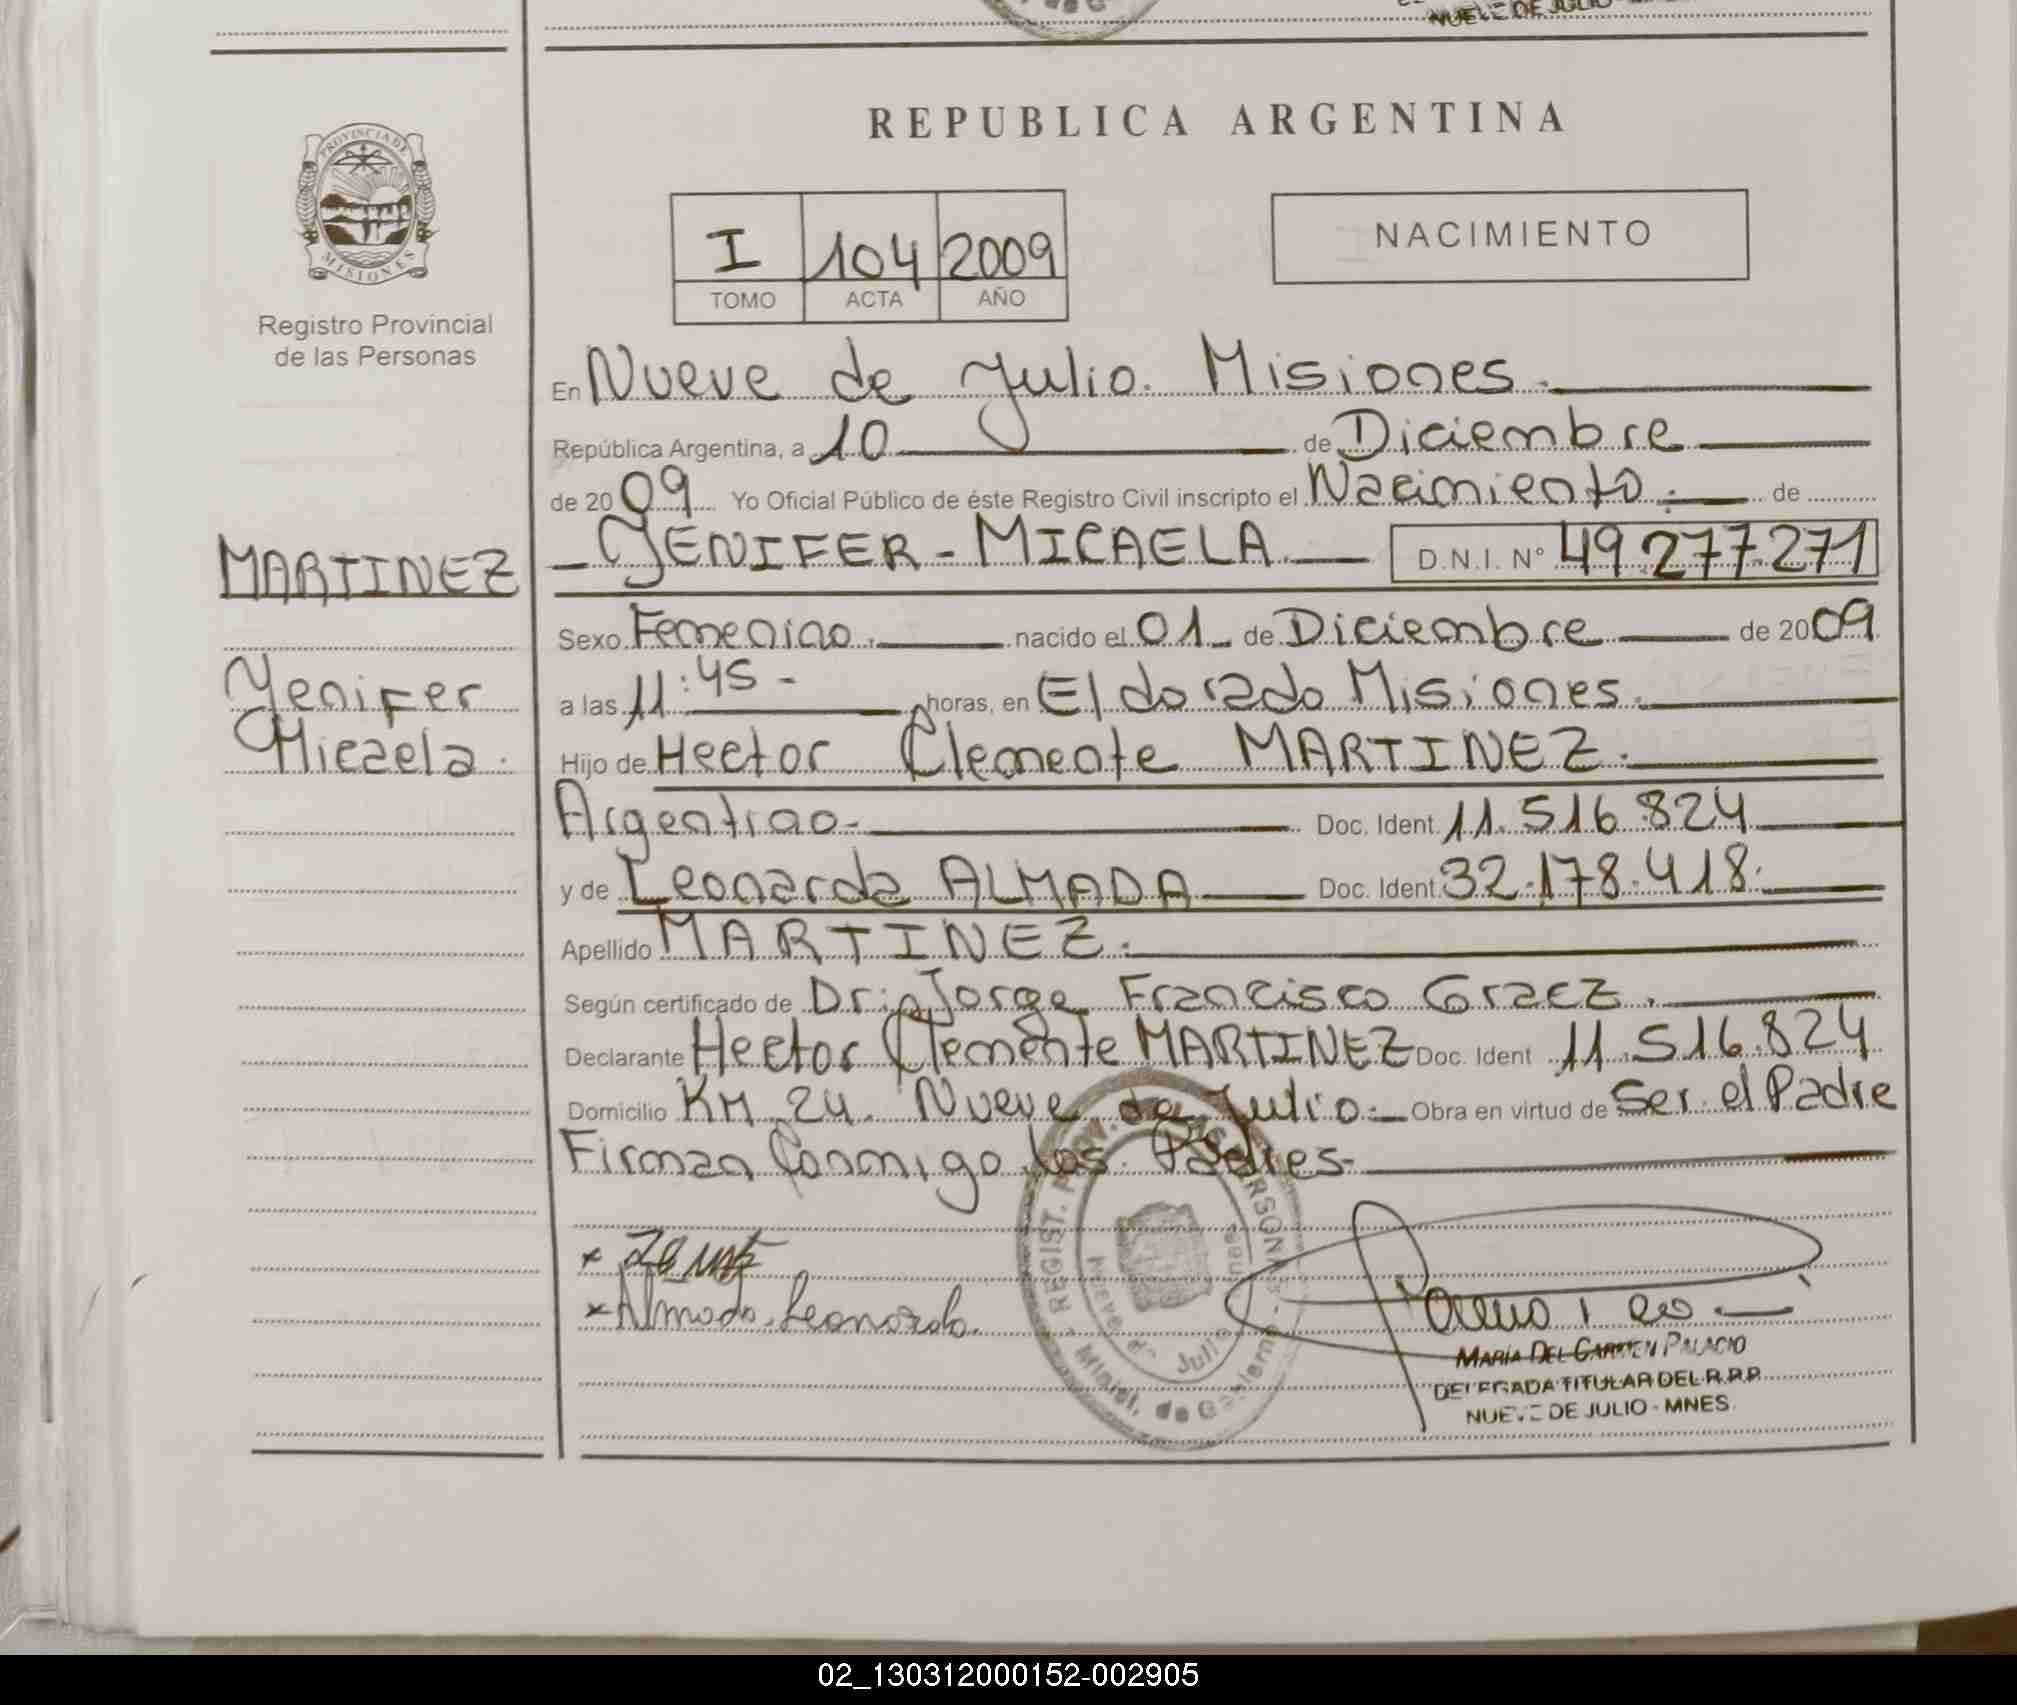 NUEVE DE JULIO
REPUBLICA ARGENTINA
PROVINCIA DE MISIONES
Registro Provincial
de las Personas
I 104 2009
TOMO ACTA AÑO
NACIMIENTO
En Nueve de Julio. Misiones.
República Argentina, a 10 de Diciembre
de 2009 Yo Oficial Público de éste Registro Civil inscripto el Nacimiento. de
MARTINEZ
Yenifer
Micaela.
- YENIFER - MICAELA. D.N.I. N° 49.277.271
Sexo Femenino. nacido el 01 de Diciembre de 2009
a las 11:45 - horas, en Eldorado Misiones.
Hijo de Hector Clemente MARTINEZ.
Argentino- Doc. Ident. 11.516.824
y de Leonarda ALMADA Doc. Ident. 32.178.418.
Apellido MARTINEZ.
Según certificado de Dr: Jorge Francisco Graez.
Declarante Hector Clemente MARTINEZ Doc. Ident 11.516.824
Domicilio KM 24. Nueve de Julio.- Obra en virtud de Ser el Padre
Firman Conmigo los Padres-
x
x Almada Leonarda.
REGIST. PROV. DE LAS PERSONAS
Nueve de Julio
Minist. de Gobierno
MARIA DEL CARMEN PALACIO
DELEGADA TITULAR DEL R.P.P.
NUEVE DE JULIO - MNES.
02_130312000152-002905